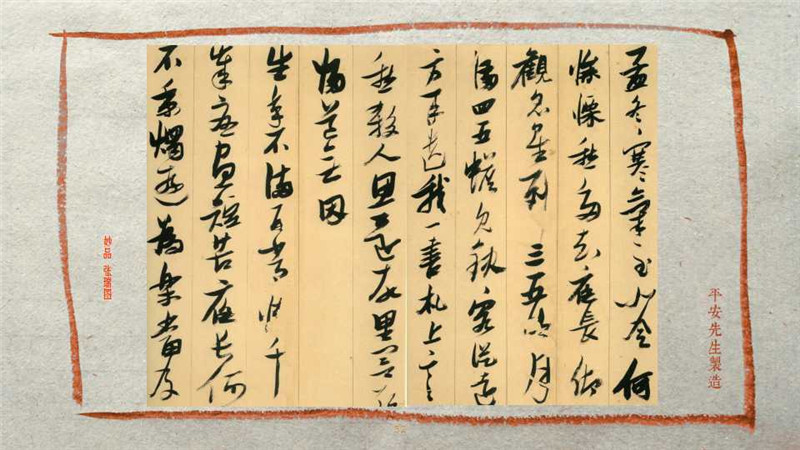 孟冬寒氣至北風何
慘慄愁多知夜長仰
觀眾星列三五明月
滿四五蟾兔缺客從遠
方來遺我一書札上言
愁殺人思還故里閭欲
歸道無因
生年不滿百常懷千
歲憂晝短苦夜長何
不秉燭遊為樂當及
平安先生製造
妙品 张瑞图